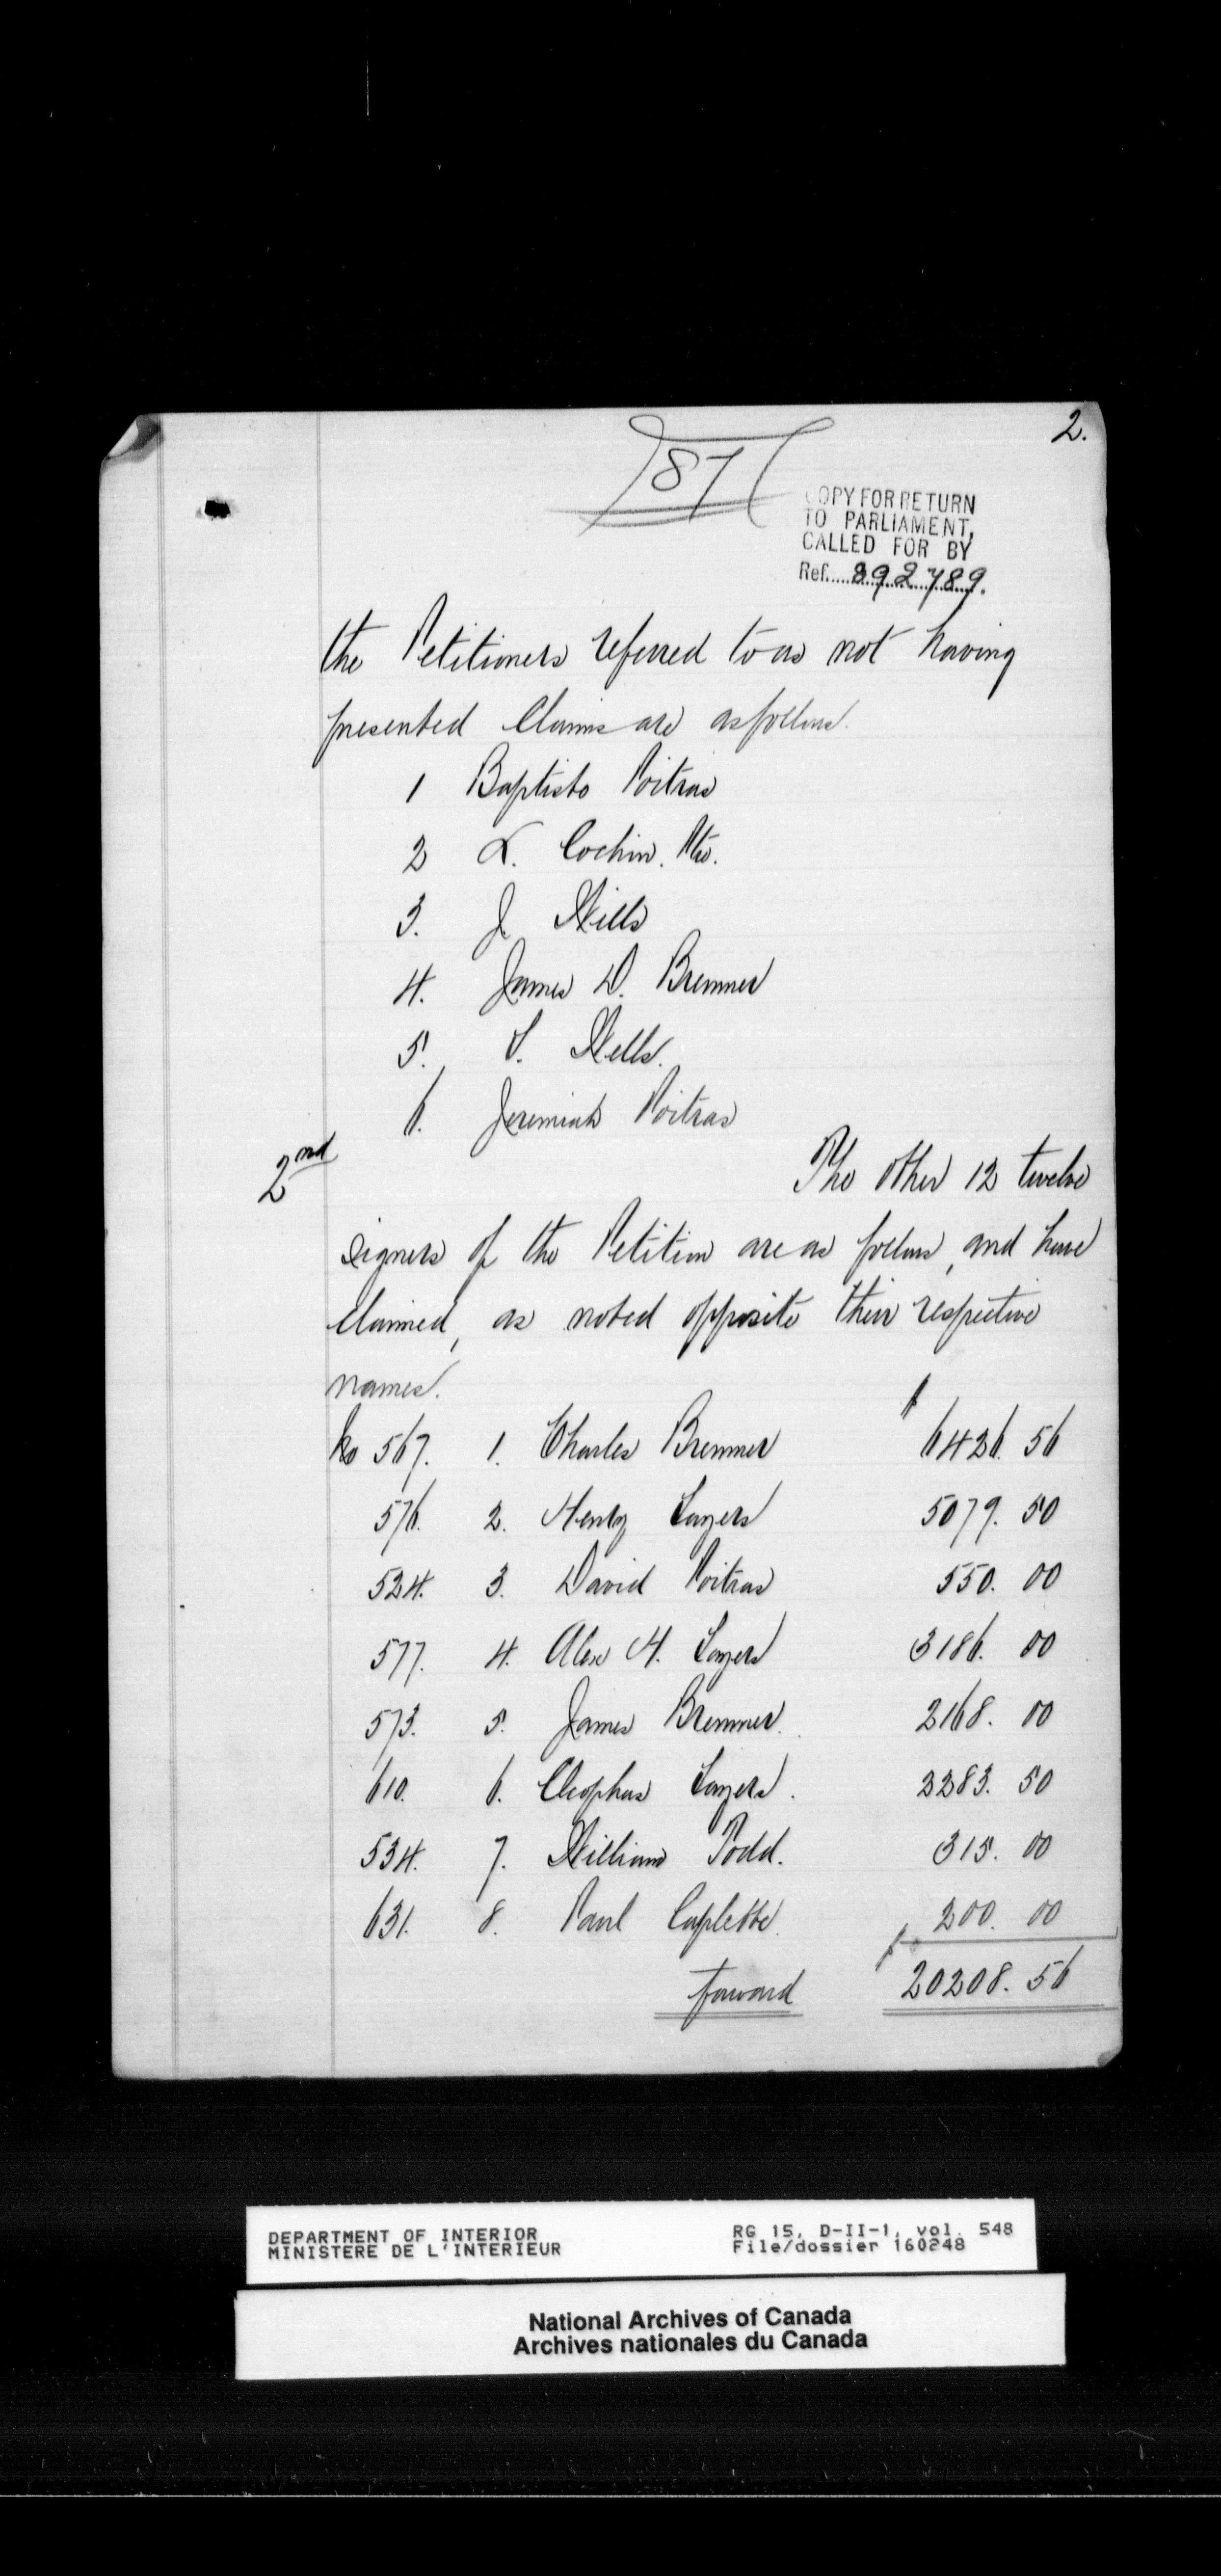 2.
187
COPY FOR RETURN
TO PARLIAMENT,
CALLED FOR BY
Ref. 892789.
the Petitioners referred to as not having
presented Claims are as follows.
1 Baptiste Poitras
2 L. Cochin. Ptre.
3. J Wills
4. James D. Bremner
5. S. Wells.
6. Jeremiah Poitras
2nd The other 12 twelve
signers of the Petition are as follows, and have
claimed, as noted opposite their respective
names.
No 567. 1. Charles Bremner $ 6426. 56
576. 2. Henry Sayers 5079. 50
524. 3. David Poitras 550. 00
577. 4. Alex H. Sayers 3186. 00
573. 5. James Bremner. 2168. 00
610. 6. Cleophus Sayers. 2283. 50
534. 7. William Todd. 315. 00
631. 8. Paul Caplette. 200. 00
forward $ 20208. 56
DEPARTMENT OF INTERIOR RG 15, D-II-1, vol. 548
MINISTERE DE L'INTERIEUR File/dossier 160248
National Archives of Canada
Archives nationales du Canada